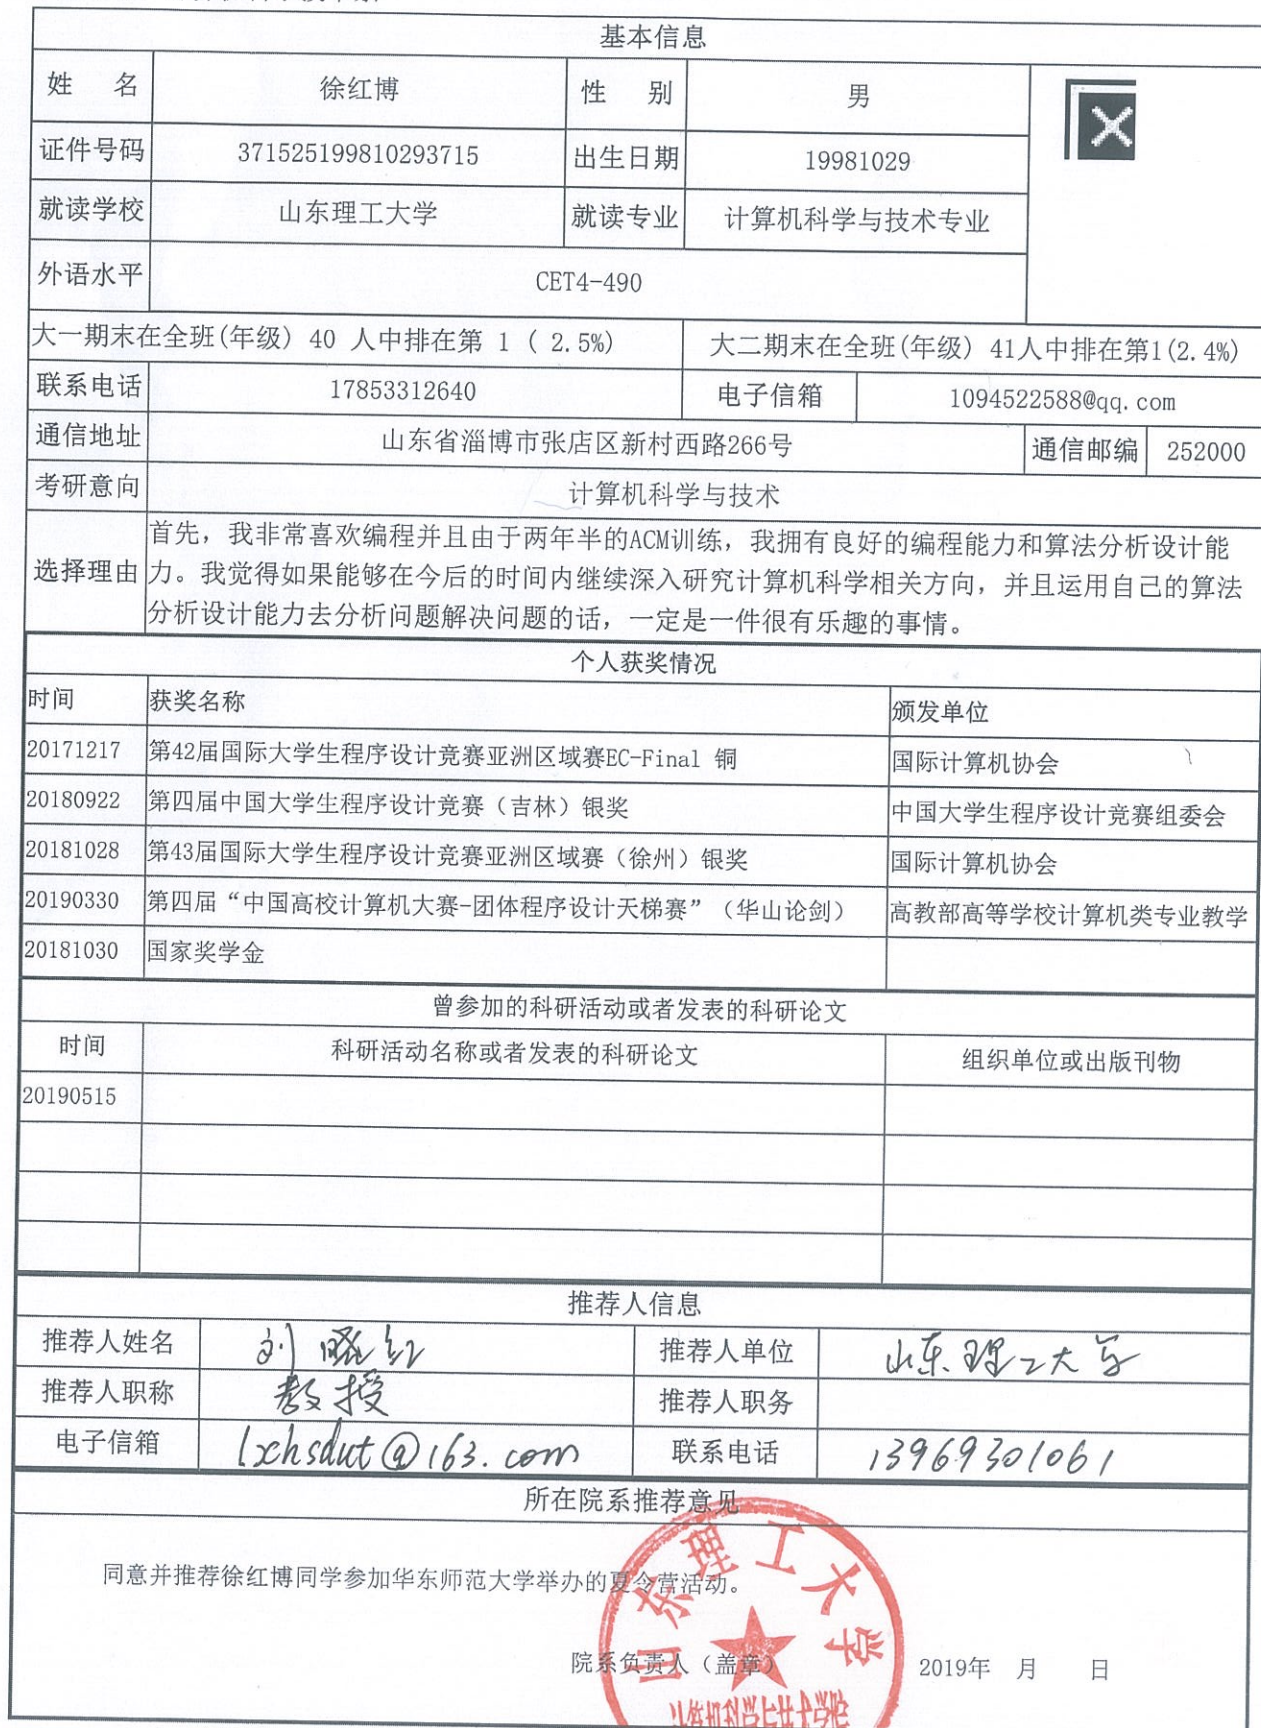 基本信息
姓 名 徐红博 性 别 男
证件号码 371525199810293715 出生日期 19981029
就读学校 山东理工大学 就读专业 计算机科学与技术专业
外语水平 CET4-490
大一期末在全班(年级) 40 人中排在第 1 ( 2.5%) 大二期末在全班(年级) 41人中排在第1(2.4%)
联系电话 17853312640 电子信箱 1094522588@qq.com
通信地址 山东省淄博市张店区新村西路266号 通信邮编 252000
考研意向 计算机科学与技术
选择理由
首先，我非常喜欢编程并且由于两年半的ACM训练，我拥有良好的编程能力和算法分析设计能
力。我觉得如果能够在今后的时间内继续深入研究计算机科学相关方向，并且运用自己的算法
分析设计能力去分析问题解决问题的话，一定是一件很有乐趣的事情。
个人获奖情况
时间 获奖名称 颁发单位
20171217 第42届国际大学生程序设计竞赛亚洲区域赛EC-Final 铜 国际计算机协会
20180922 第四届中国大学生程序设计竞赛（吉林）银奖 中国大学生程序设计竞赛组委会
20181028 第43届国际大学生程序设计竞赛亚洲区域赛（徐州）银奖 国际计算机协会
20190330 第四届“中国高校计算机大赛-团体程序设计天梯赛”（华山论剑） 高教部高等学校计算机类专业教学
20181030 国家奖学金
曾参加的科研活动或者发表的科研论文
时间 科研活动名称或者发表的科研论文 组织单位或出版刊物
20190515
推荐人信息
推荐人姓名 刘晓红 推荐人单位 山东理工大学
推荐人职称 教授 推荐人职务
电子信箱 lxhsdut@163.com 联系电话 13969301061
所在院系推荐意见
同意并推荐徐红博同学参加华东师范大学举办的夏令营活动。
院系负责人（盖章） 2019年 月 日
山东理工大学
计算机科学与技术学院